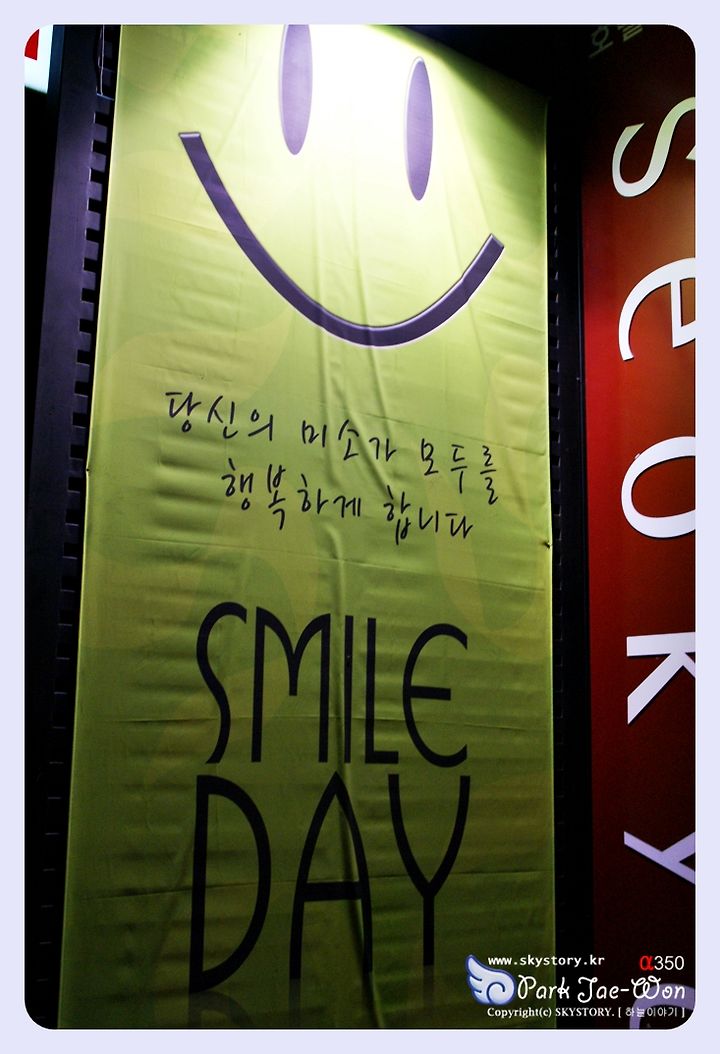 당신의 미소가 모두를
행복하게 합니다
SMILE
DAY
Seoky
www.skystory.kr
α350
Park Jae-Won
Copyright(c) SKYSTORY. [ 하늘이야기 ]